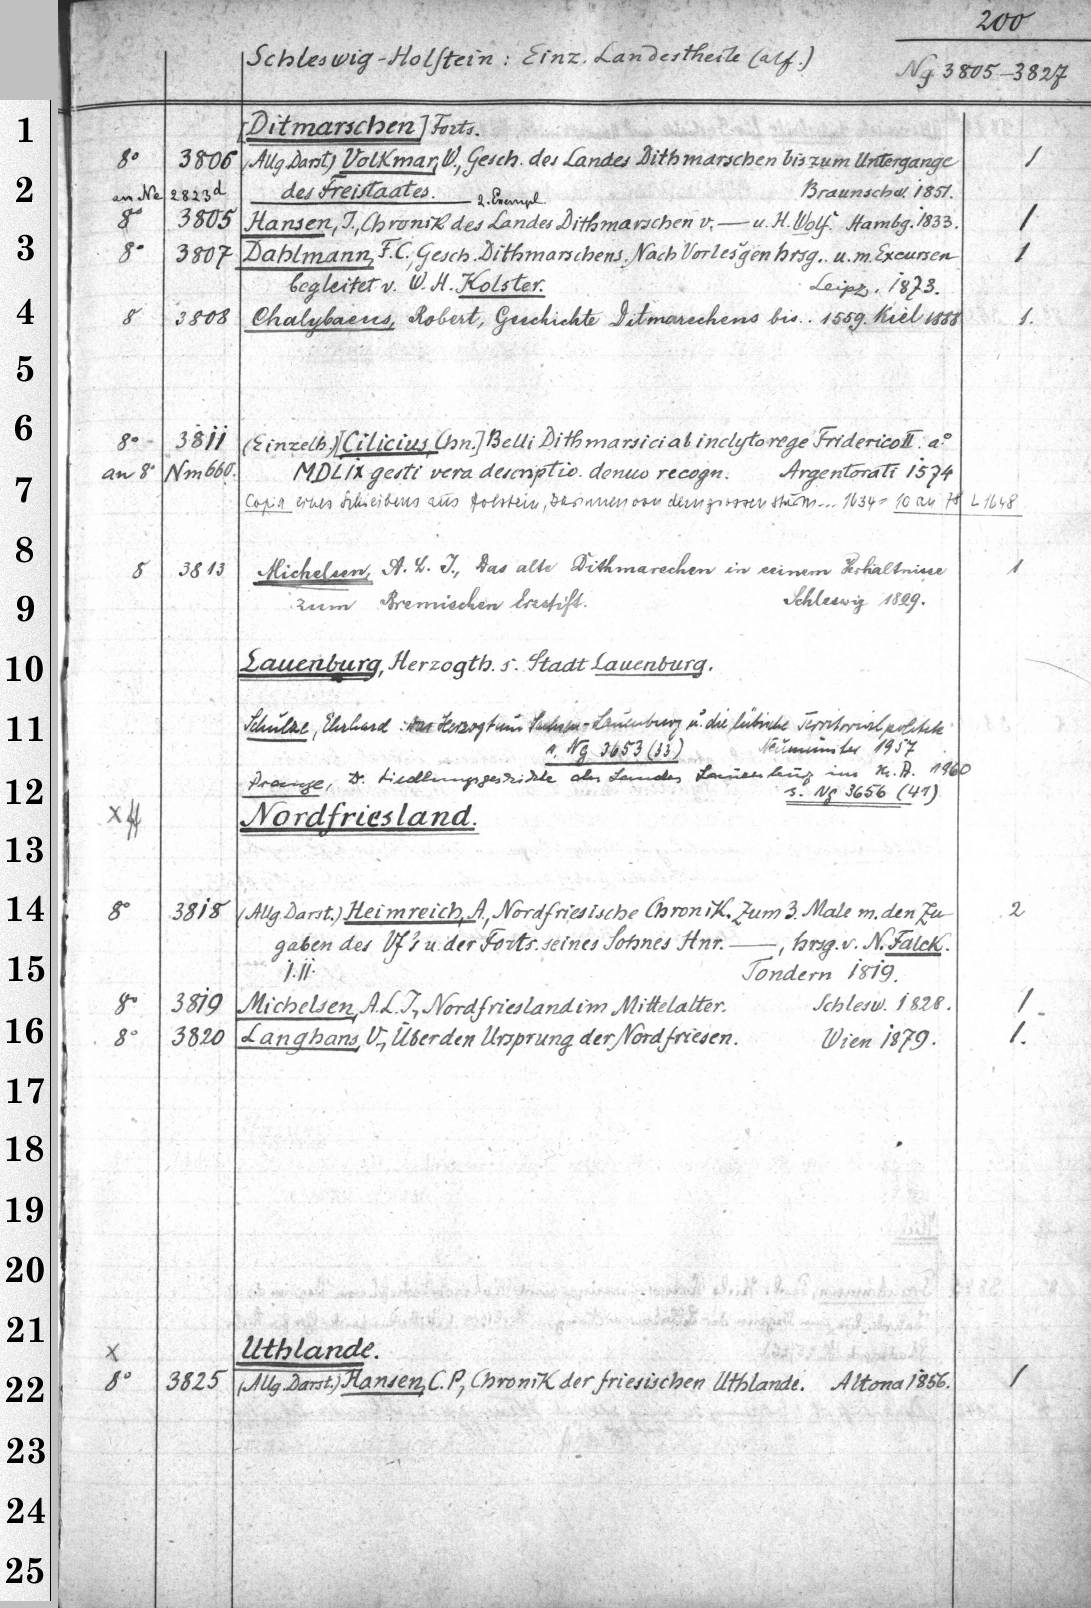 200
Schleswig-Holstein: Einz. Landestheile (alf.)
Ng 3805–3827
1
[Ditmarschen] Forts.
8° 3806 (Allg. Darst.) Volkmar, W., Gesch. des Landes Dithmarschen bis zum Untergange 1
2
an Ne 2823d des Freistaates. 2. Exempl. Braunschw. 1851.
8° 3805 Hansen, J., Chronik des Landes Dithmarschen v. — u. H. Wolf. Hambg. 1833. 1
3
8° 3807 Dahlmann, F.C., Gesch. Dithmarschens. Nach Vorlesgen hrsg. u. m. Excursen 1
begleitet v. W. H. Kolster. Leipz. 1873.
4
8 3808 Chalybaeus, Robert, Geschichte Ditmarschens bis.. 1559. Kiel 1888 1.
5
6
8° 3811 (Einzelh.) [Cilicius, Chn.] Belli Dithmarsici ab inclyto rege Friderico II. a°
an 8° Nm 660. MDLIX gesti vera descriptio. denuo recogn. Argentorati 1574
7
Copia eines Schreibens aus Holstein, darinnen von dem grossen Sturm... 1634 = 10 an 78 L 1648
8
8 3813 Michelsen, A. L. J., Das alte Dithmarschen in seinem Verhältnisse 1
9
zum Bremischen Erzstift. Schleswig 1829.
10
Lauenburg, Herzogth. s. Stadt Lauenburg.
11
Schulze, Ehrhard: Das Herzogtum Sachsen-Lauenburg u. die lübische Territorialpolitik
s. Ng 3653 (33) Neumünster 1957
12
Prange, W. Siedlungsgeschichte des Landes Lauenburg im M. A. 1960
s. Ng 3656 (41)
x Nordfriesland.
13
14
8° 3818 (Allg. Darst.) Heimreich, A., Nordfriesische Chronik. Zum 3. Male m. den Zu- 2
gaben des Vf's u. der Forts. seines Sohnes Hnr. —, hrsg. v. N. Falck.
15
I. II. Tondern 1819.
8° 3819 Michelsen, A. L. J., Nordfriesland im Mittelalter. Schlesw. 1828. 1
16
8° 3820 Langhans, V., Über den Ursprung der Nordfriesen. Wien 1879. 1.
17
18
19
20
21
x Uthlande.
22
8° 3825 (Allg. Darst.) Hansen, C. P., Chronik der friesischen Uthlande. Altona 1856. 1
23
24
25